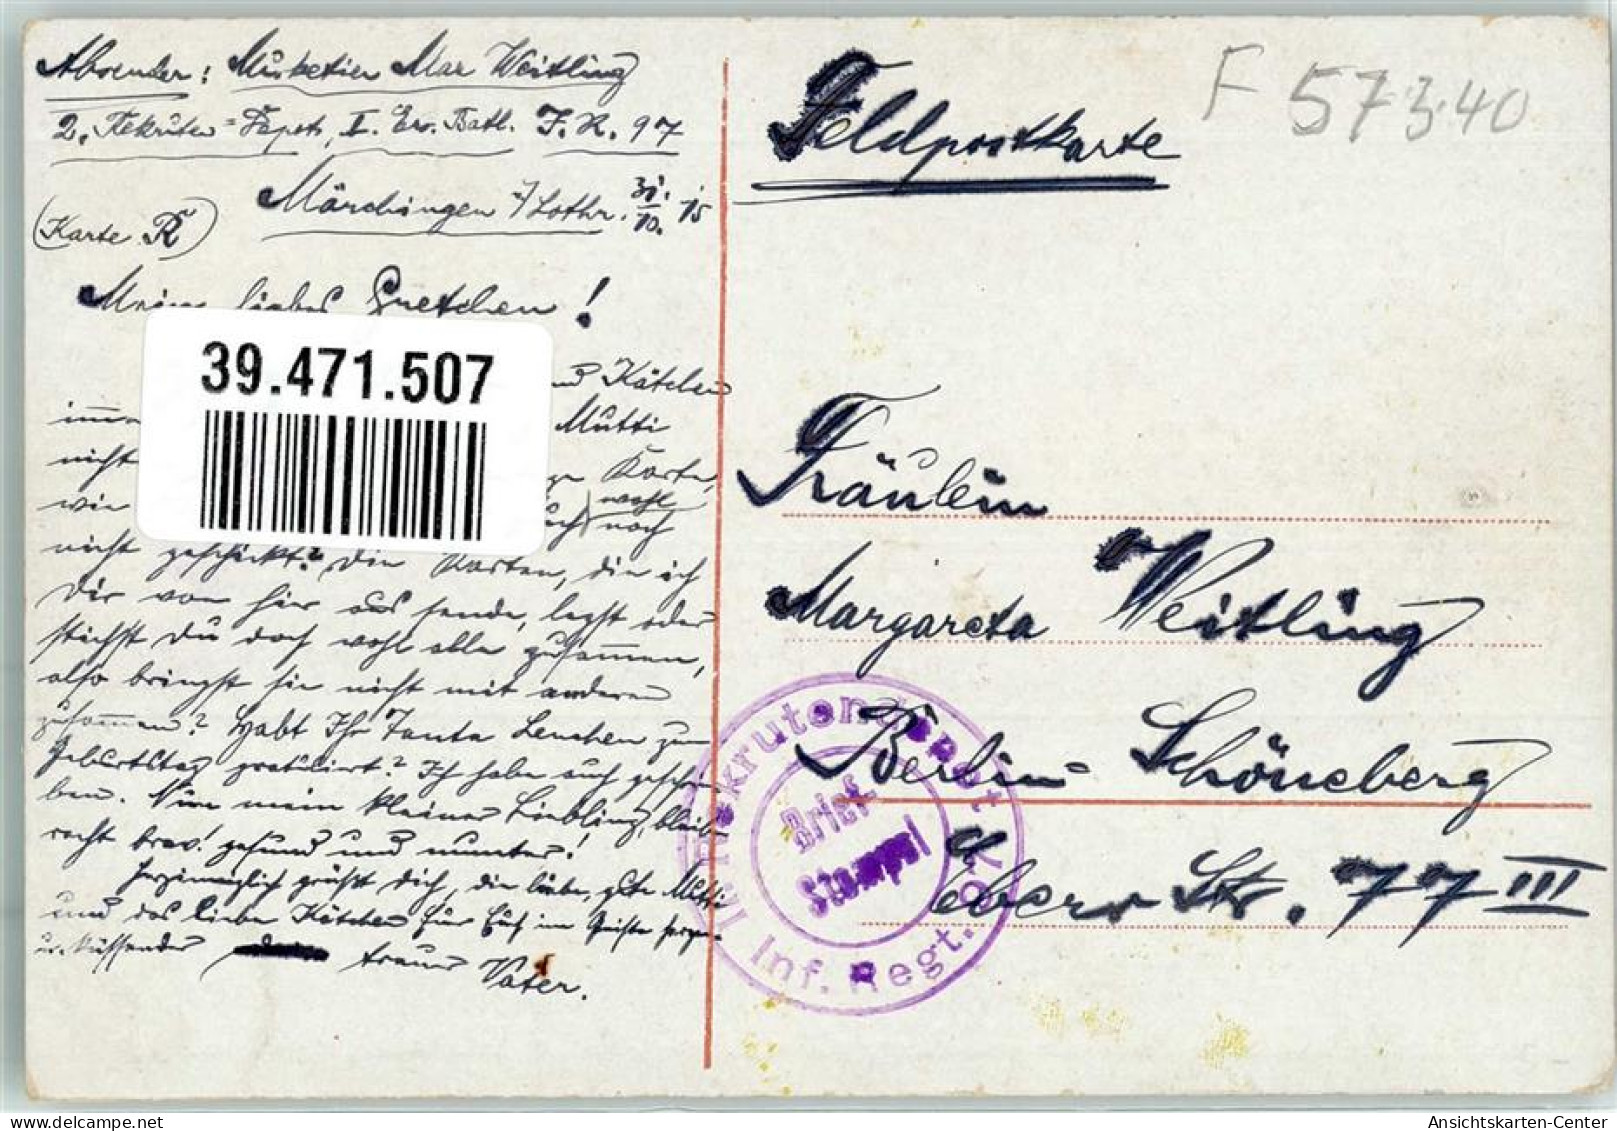 Absender: Musketier Max Weitling
2. Rekruten-Depot, II. Ers. Batl. I. R. 97
Mörchingen i/Lothr. 31./10. 15
(Karte R)
Mein liebes Gretchen!
39.471.507
und Kätchen
immer Mutti
nicht Karte,
wie auch wohl noch
nicht geschickt? Die Karten, die ich
Dir von hier aus sende, legst oder
steckst Du doch wohl alle zusammen,
also bringst sie nicht mit anderen
zusammen? Habt Ihr Tante Lenchen zum
Geburtstag gratuliert? Ich habe auch geschrie-
ben. Nun mein kleiner Liebling, bleibe
recht brav! gesund und munter!
Herzinniglich grüßt Dich, die liebe, gute Mutti
und das liebe Kätchen Euer Euch im Geiste herzen-
u. küssender treuer Vater.
F 57340
Feldpostkarte
Fräulein
Margareta Weitling
Berlin-Schöneberg
Ebers Str. 77 III
Rekrutendepot
Brief-
Stempel
Inf. Regt. 97
delcampe.net
geronimo11
Ansichtskarten-Center